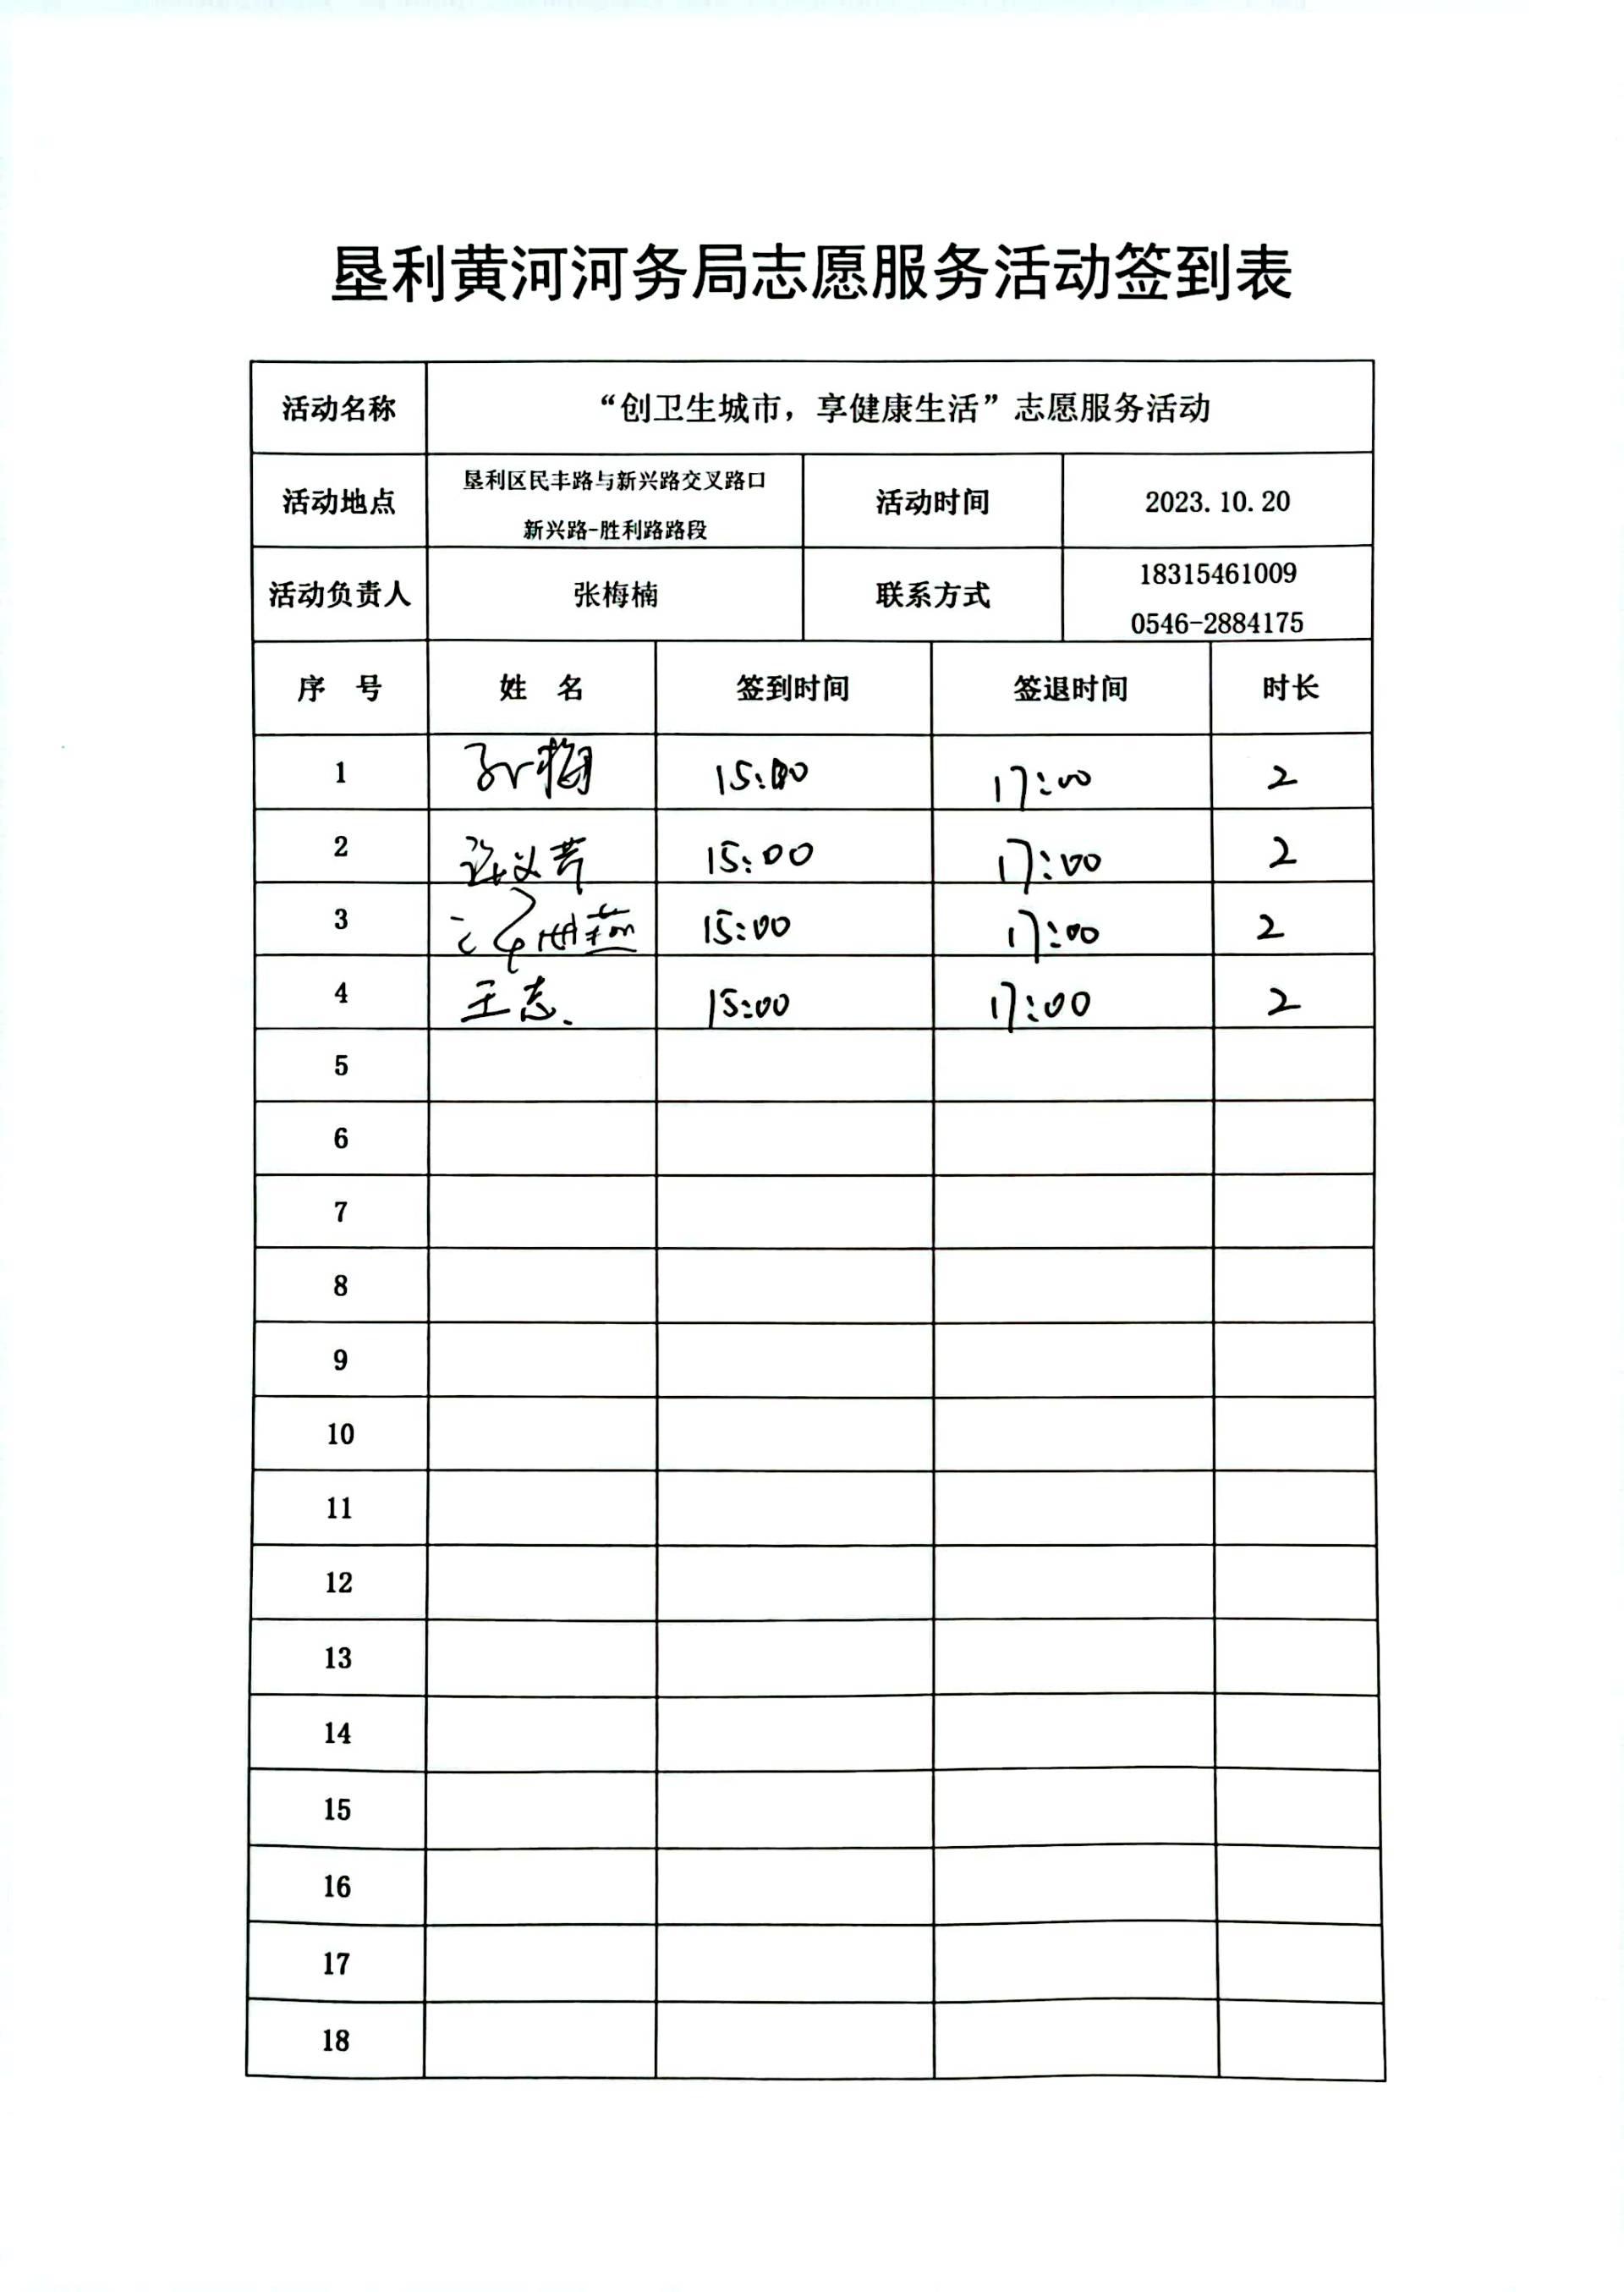 垦利黄河河务局志愿服务活动签到表
活动名称 “创卫生城市，享健康生活”志愿服务活动
活动地点 垦利区民丰路与新兴路交叉路口 活动时间 2023.10.20
新兴路-胜利路路段
活动负责人 张梅楠 联系方式 18315461009
0546-2884175
序 号 姓 名 签到时间 签退时间 时长
1 孙梅 15:00 17:00 2
2 15:00 17:00 2
3 15:00 17:00 2
4 王志 15:00 17:00 2
5
6
7
8
9
10
11
12
13
14
15
16
17
18